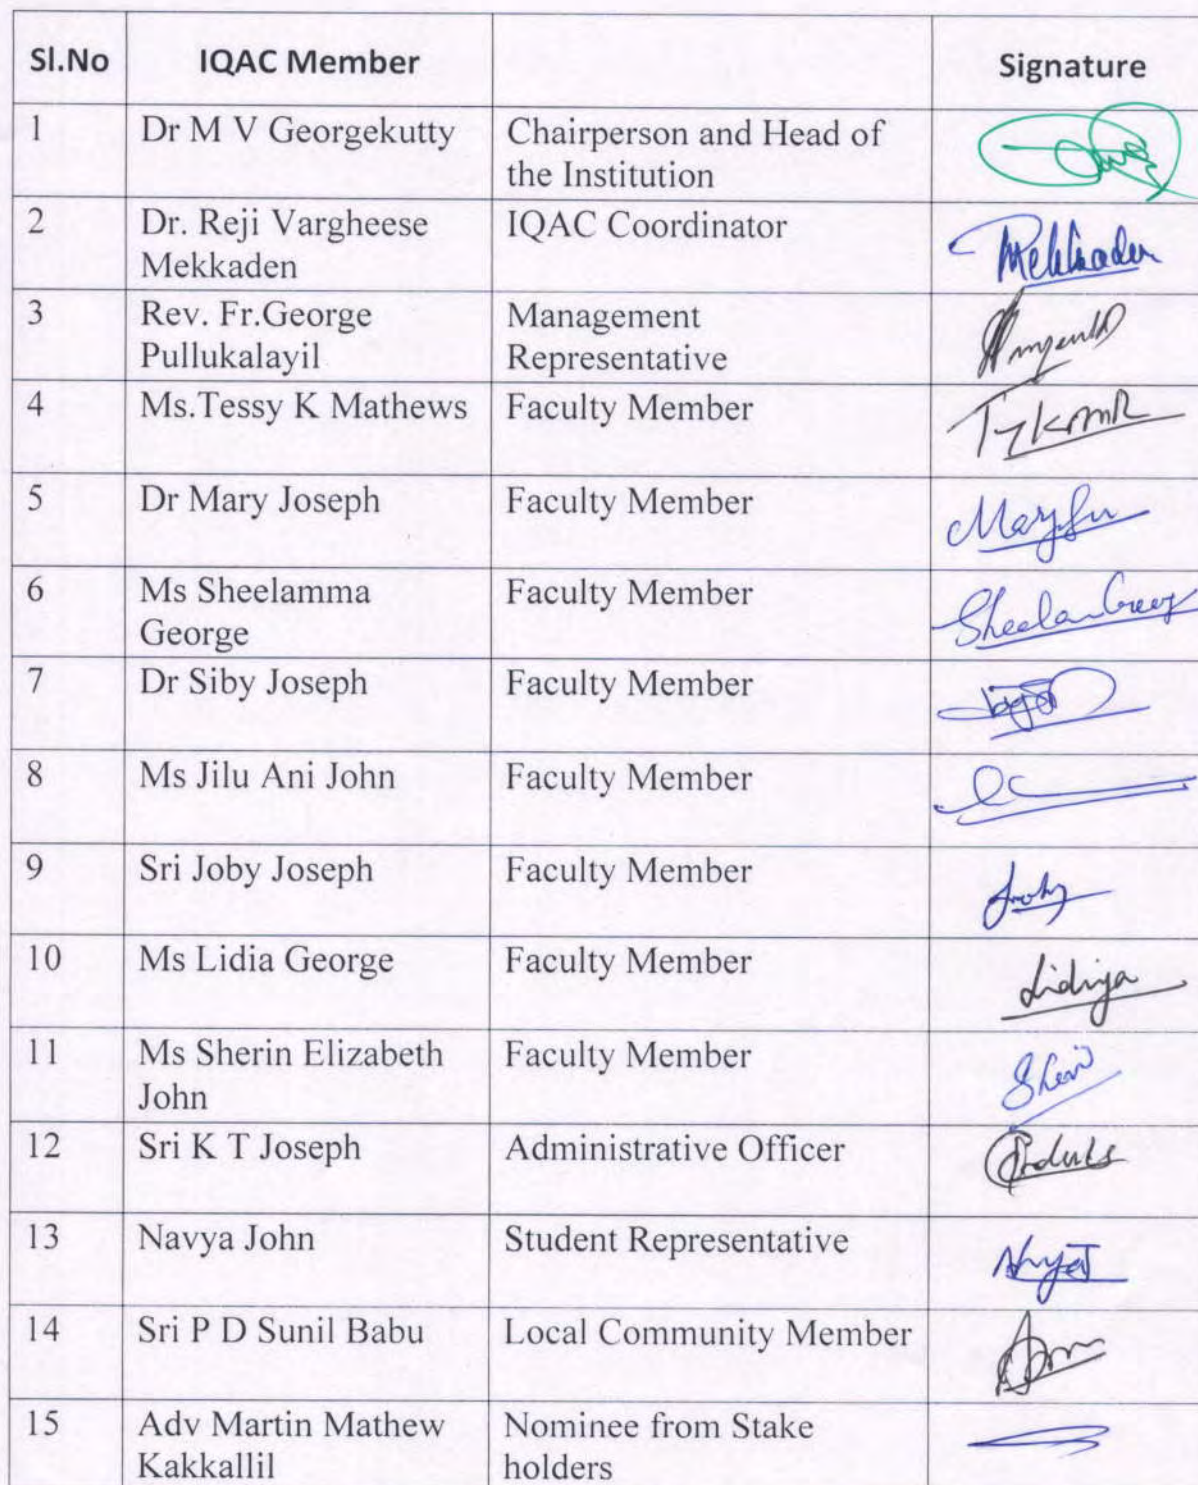 Sl.No IQAC Member Signature
1 Dr M V Georgekutty Chairperson and Head of
the Institution
2 Dr. Reji Vargheese IQAC Coordinator
Mekkaden Mekkaden
3 Rev. Fr.George Management
Pullukalayil Representative
4 Ms.Tessy K Mathews Faculty Member
5 Dr Mary Joseph Faculty Member
6 Ms Sheelamma Faculty Member
George
7 Dr Siby Joseph Faculty Member
8 Ms Jilu Ani John Faculty Member
9 Sri Joby Joseph Faculty Member
10 Ms Lidia George Faculty Member
Lidiya
11 Ms Sherin Elizabeth Faculty Member
John
12 Sri K T Joseph Administrative Officer
13 Navya John Student Representative
14 Sri P D Sunil Babu Local Community Member
15 Adv Martin Mathew Nominee from Stake
Kakkallil holders